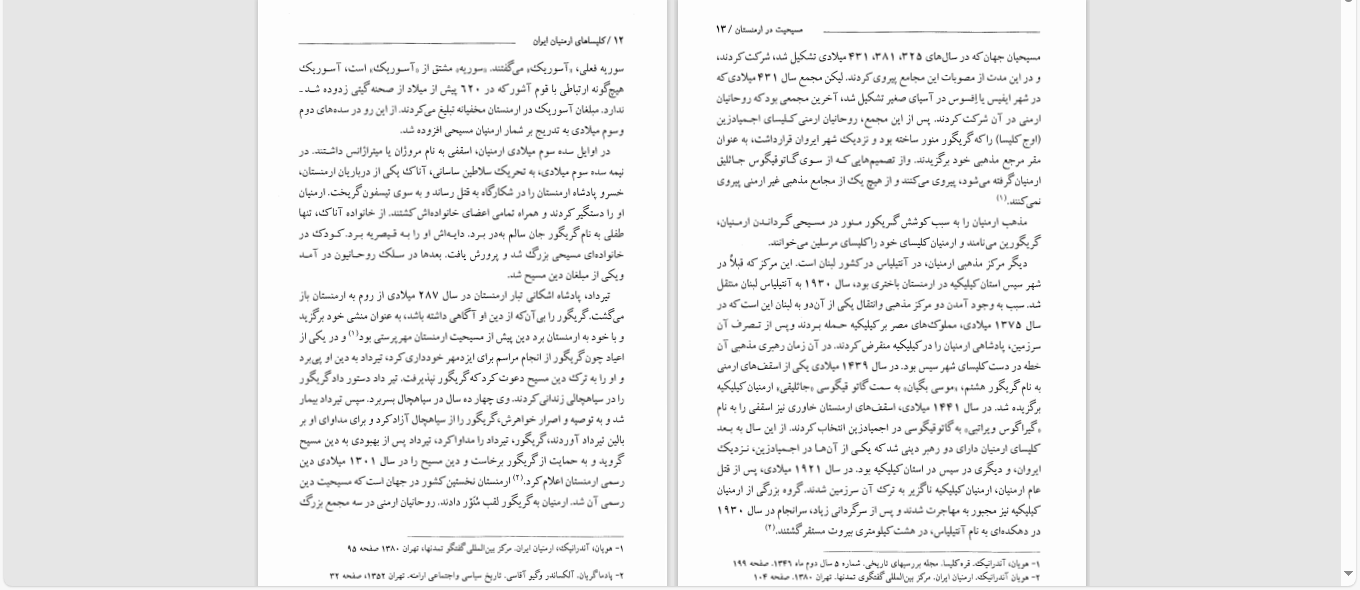 ۱۲ / کلیساهای ارمنیان ایران
سوریه فعلی، «آسوریک» می‌گفتند. «سوریه» مشتق از «آسوریک» است، آسوریک
هیچ‌گونه ارتباطی با قوم آشور که در ۶۲۰ پیش از میلاد از صحنه گیتی زدوده شد ـ
ندارد. مبلغان آسوریک در ارمنستان مخفیانه تبلیغ می‌کردند. از این رو در سده‌های دوم
وسوم میلادی به تدریج بر شمار ارمنیان مسیحی افزوده شد.
در اوایل سده سوم میلادی ارمنیان، اسقفی به نام مروژان یا میتراژانس داشتند. در
نیمه سده سوم میلادی، به تحریک سلاطین ساسانی، آناک یکی از درباریان ارمنستان،
خسرو پادشاه ارمنستان را در شکارگاه به قتل رساند و به سوی تیسفون گریخت. ارمنیان
او را دستگیر کردند و همراه تمامی اعضای خانواده‌اش کشتند. از خانواده آناک، تنها
طفلی به نام گریگور جان سالم به‌در برد. دایه‌اش او را به قیصریه برد. کودک در
خانواده‌ای مسیحی بزرگ شد و پرورش یافت. بعدها در سلک روحانیون در آمد
ویکی از مبلغان دین مسیح شد.
تیرداد، پادشاه اشکانی تبار ارمنستان در سال ۲۸۷ میلادی از روم به ارمنستان باز
می‌گشت. گریگور را بی‌آن‌که از دین او آگاهی داشته باشد، به عنوان منشی خود برگزید
و با خود به ارمنستان برد دین پیش از مسیحیت ارمنستان مهرپرستی بود(۱) و در یکی از
اعیاد چون گریگور از انجام مراسم برای ایزدمهر خودداری کرد، تیرداد به دین او پی‌برد
و او را به ترک دین مسیح دعوت کرد که گریگور نپذیرفت. تیر داد دستور داد گریگور
را در سیاهچالی زندانی کردند. وی چهار ده سال در سیاهچال بسربرد. سپس تیرداد بیمار
شد و به توصیه و اصرار خواهرش، گریگور را از سیاهچال آزاد کرد و برای مداوای او بر
بالین تیرداد آوردند، گریگور، تیرداد را مداوا کرد، تیرداد پس از بهبودی به دین مسیح
گروید و به حمایت از گریگور برخاست و دین مسیح را در سال ۱۳۰۱ میلادی دین
رسمی ارمنستان اعلام کرد.(۲) ارمنستان نخستین کشور در جهان است که مسیحیت دین
رسمی آن شد. ارمنیان به گریگور لقب مُنَوّر دادند. روحانیان ارمنی در سه مجمع بزرگ
۱- هویان، آندرانیک، ارمنیان ایران. مرکز بین‌المللی گفتگو تمدنها، تهران ۱۳۸۰ صفحه ۹۵
۲- پادماگریان. آلکساندر وگیو آقاسی. تاریخ سیاسی واجتماعی ارامنه. تهران ۱۳۵۲، صفحه ۳۲
مسیحیت در ارمنستان / ۱۳
مسیحیان جهان که در سال‌های ۳۲۵، ۳۸۱، ۴۳۱ میلادی تشکیل شد، شرکت کردند،
و در این مدت از مصوبات این مجامع پیروی کردند. لیکن مجمع سال ۴۳۱ میلادی که
در شهر ایفیس یا اِفِسوس در آسیای صغیر تشکیل شد، آخرین مجمعی بود که روحانیان
ارمنی در آن شرکت کردند. پس از این مجمع، روحانیان ارمنی کلیسای اجمیادزین
(اوج کلیسا) را که گریگور منور ساخته بود و نزدیک شهر ایروان قرارداشت، به عنوان
مقر مرجع مذهبی خود برگزیدند. واز تصمیم‌هایی که از سوی گاتوقیگوس جاثلیق
ارمنیان گرفته می‌شود، پیروی می‌کنند و از هیچ یک از مجامع مذهبی غیر ارمنی پیروی
نمی‌کنند.(۱)
مذهب ارمنیان را به سبب کوشش گریکور منور در مسیحی گرداندن ارمنیان،
گریگورین می‌نامند و ارمنیان کلیسای خود را کلیسای مرسلین می‌خوانند.
دیگر مرکز مذهبی ارمنیان، در آنتیلیاس در کشور لبنان است. این مرکز که قبلاً در
شهر سیس استان کیلیکیه در ارمنستان باختری بود، سال ۱۹۳۰ به آنتیلیاس لبنان منتقل
شد. سبب به وجود آمدن دو مرکز مذهبی وانتقال یکی از آن‌دو به لبنان این است که در
سال ۱۳۷۵ میلادی، مملوک‌های مصر بر کیلیکیه حمله بردند و پس از تصرف آن
سرزمین، پادشاهی ارمنیان را در کیلیکیه منقرض کردند. در آن زمان رهبری مذهبی آن
خطه در دست کلیسای شهر سیس بود. در سال ۱۴۳۹ میلادی یکی از اسقف‌های ارمنی
به نام گریگور هشتم، «موسی بگیان» به سمت گاتو قیگوسی «جاثلیقی» ارمنیان کیلیکیه
برگزیده شد. در سال ۱۴۴۱ میلادی، اسقف‌های ارمنستان خاوری نیز اسقفی را به نام
«گیراگوس ویراتبی» به گاتوقیگوسی در اجمیادزین انتخاب کردند. از این سال به بعد
کلیسای ارمنیان دارای دو رهبر دینی شد که یکی از آن‌ها در اجمیادزین، نزدیک
ایروان، و دیگری در سیس در استان کیلیکیه بود. در سال ۱۹۲۱ میلادی، پس از قتل
عام ارمنیان، ارمنیان کیلیکیه ناگزیر به ترک آن سرزمین شدند. گروه بزرگی از ارمنیان
کیلیکیه نیز مجبور به مهاجرت شدند و پس از سرگردانی زیاد، سرانجام در سال ۱۹۳۰
در دهکده‌ای به نام آنتیلیاس، در هشت کیلومتری بیروت مستقر گشتند.(۲)
۱- هویان، آندرانیک. قره کلیسا. مجله بررسیهای تاریخی. شماره ۵ سال دوم ماه ۱۳۴۱. صفحه ۱۹۹
۲- هویان آندرانیک. ارمنیان ایران. مرکز بین‌المللی گفتگوی تمدنها. تهران ۱۳۸۰. صفحه ۱۰۴